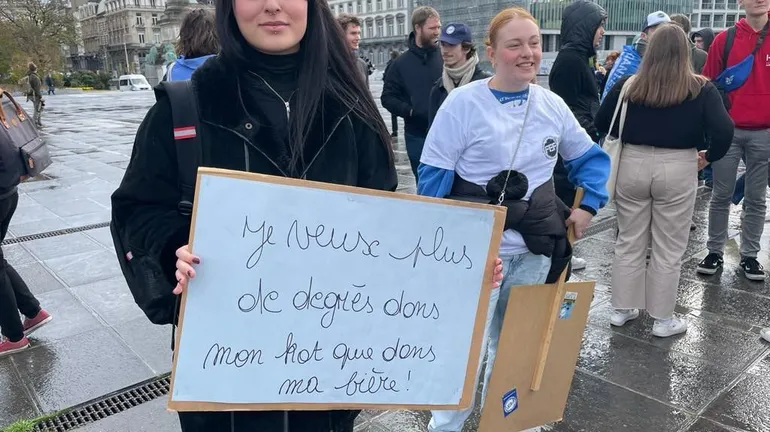 Je veux plus
de degrés dans
mon kot que dans
ma bière!